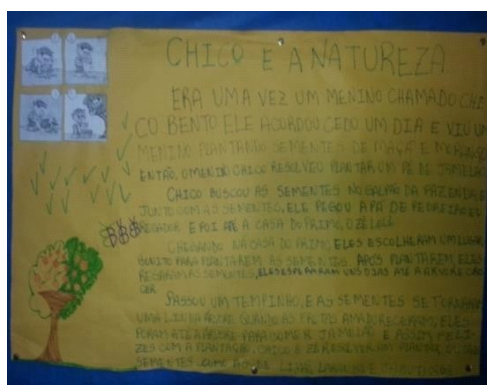 CHICO E A NATUREZA
ERA UMA VEZ UM MENINO CHAMADO CHI
CO BENTO ELE ACORDOU CEDO UM DIA E VIU UM
MENINO PLANTANDO SEMENTES DE MAÇÃ E MORANGO
ENTÃO, O MENINO CHICO RESOLVEU PLANTAR UM PÉ DE
CHICO BUSCOU AS SEMENTES NO GALPÃO DA FAZENDA E
JUNTO COM AS SEMENTES, ELE PEGOU A PÁ DE PEDREIRO E O
REGADOR E FOI ATÉ A CASA DO PRIMO, O ZÉ LELÉ
CHEGANDO NA CASA DO PRIMO, ELES ESCOLHERAM UM LUGAR
BONITO PARA PLANTAREM AS SEMENTES. APÓS PLANTAREM, ELES
REGARAM AS SEMENTES, ELES ESPERARAM UNS DIAS ATÉ A ÁRVORE CRES
CER
PASSOU UM TEMPINHO, E AS SEMENTES SE TORNARAM
UMA LINDA ÁRVORE QUANDO AS FRUTAS AMADURECERAM, ELES
FORAM ATÉ A ÁRVORE PARA COMER JAMELÃO E ASSIM FELI
ZES COM A PLANTAÇÃO, CHICO E ZÉ RESOLVERAM PLANTAR OUTRAS
SEMENTES COMO LARANJA E